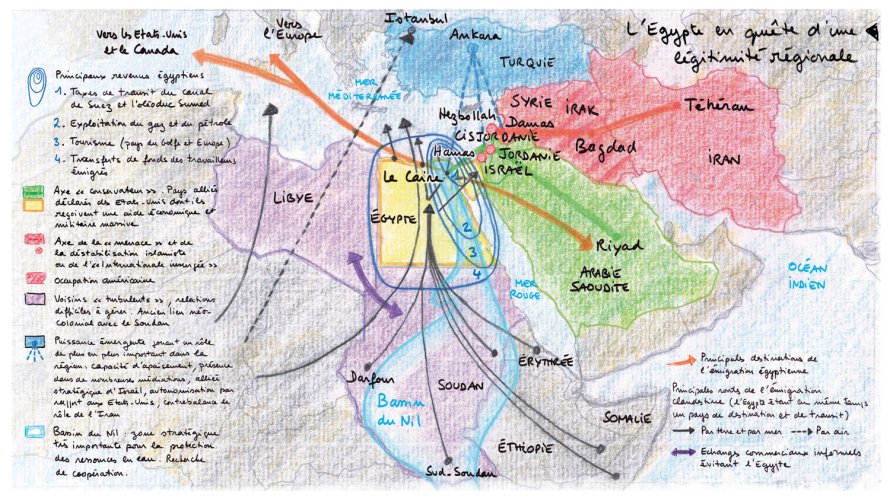 L'Égypte en quête d'une
légitimité régionale
Vers les Etats-Unis
et le Canada
Vers
l'Europe
Istanbul
Ankara
TURQUIE
MER
MÉDITERRANÉE
Hezbollah
SYRIE
Damas
IRAK
Téhéran
CISJORDANIE
Bagdad
IRAN
Hamas
JORDANIE
ISRAËL
Le Caire
LIBYE
ÉGYPTE
1
2
3
4
Riyad
ARABIE
SAOUDITE
MER
ROUGE
OCÉAN
INDIEN
Darfour
SOUDAN
ÉRYTHRÉE
Bassin
du Nil
SOMALIE
ÉTHIOPIE
Sud-Soudan
Principaux revenus égyptiens
1. Taxes de transit du canal
de Suez et l'oléoduc Sumed
2. Exploitation du gaz et du pétrole
3. Tourisme (pays du Golfe et Europe)
4. Transferts de fonds des travailleurs
émigrés
Axe « conservateur ». Pays alliés
déclarés des Etats-Unis dont ils
reçoivent une aide économique et
militaire massive
Axe de la « menace » et de
la déstabilisation islamiste
ou de l'« Internationale insurgée »
Occupation américaine
Voisins « turbulents », relations
difficiles à gérer. Ancien lien néo-
colonial avec le Soudan
Puissance émergente jouant un rôle
de plus en plus important dans la
région : capacité d'apaisement, présence
dans de nombreuses médiations, alliée
stratégique d'Israël, autonomisation par
rapport aux Etats-Unis, contrebalance le
rôle de l'Iran
Bassin du Nil : zone stratégique
très importante pour la protection
des ressources en eau. Recherche
de coopération.
Principales destinations de
l'émigration égyptienne
Principales routes de l'émigration
clandestine (l'Egypte étant en même temps
un pays de destination et de transit)
Par terre et par mer
Par air
Echanges commerciaux informels
évitant l'Egypte